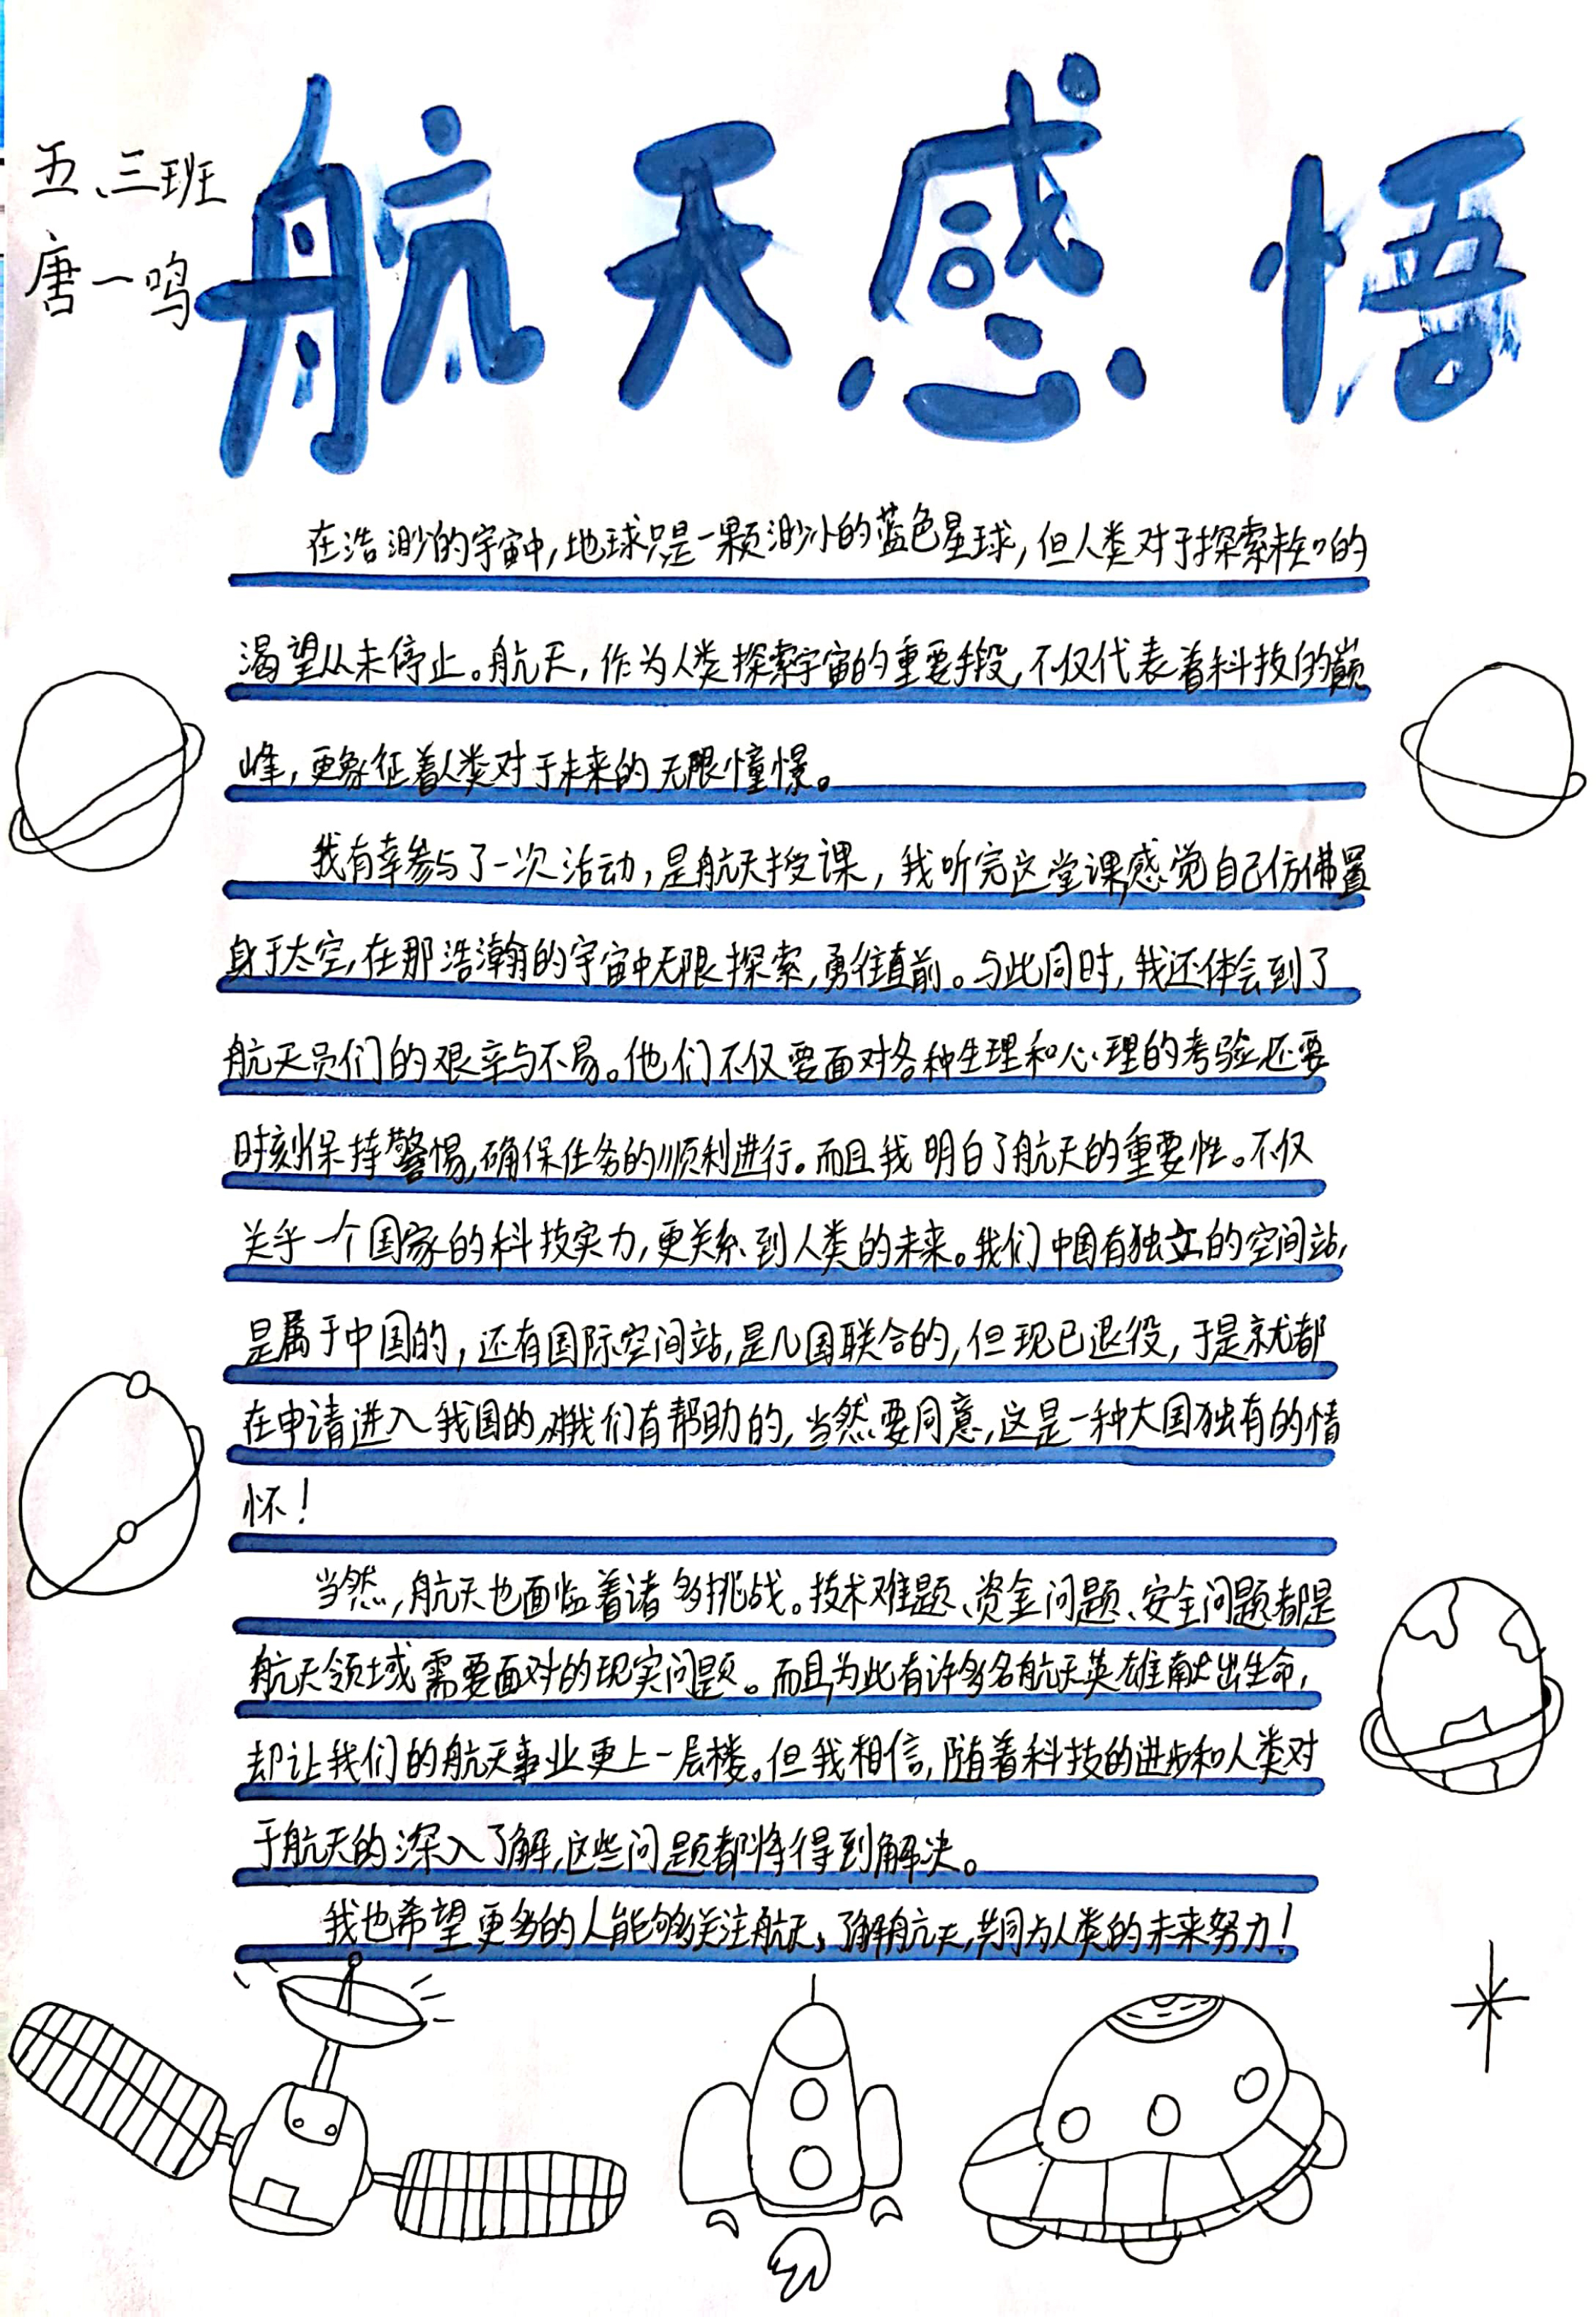 航天感悟
五、三班
唐一鸣
在浩渺的宇宙中,地球只是一颗渺小的蓝色星球,但人类对于探索未知的
渴望从未停止。航天,作为人类探索宇宙的重要手段,不仅代表着科技的巅
峰,更象征着人类对于未来的无限憧憬。
我有幸参与了一次活动,是航天授课,我听完这堂课,感觉自己仿佛置
身于太空,在那浩瀚的宇宙中无限探索,勇往直前。与此同时,我还体会到了
航天员们的艰辛与不易。他们不仅要面对各种生理和心理的考验还要
时刻保持警惕,确保任务的顺利进行。而且我明白了航天的重要性。不仅
关乎一个国家的科技实力,更关系到人类的未来。我们中国有独立的空间站,
是属于中国的,还有国际空间站,是几国联合的,但现已退役,于是就都
在申请进入我国的,对我们有帮助的,当然要同意,这是一种大国独有的情
怀!
当然,航天也面临着诸多挑战。技术难题、资金问题、安全问题都是
航天领域需要面对的现实问题。而且为此有许多名航天英雄献出生命,
却让我们的航天事业更上一层楼。但我相信,随着科技的进步和人类对
于航天的深入了解,这些问题都将得到解决。
我也希望更多的人能够关注航天,了解航天,共同为人类的未来努力!